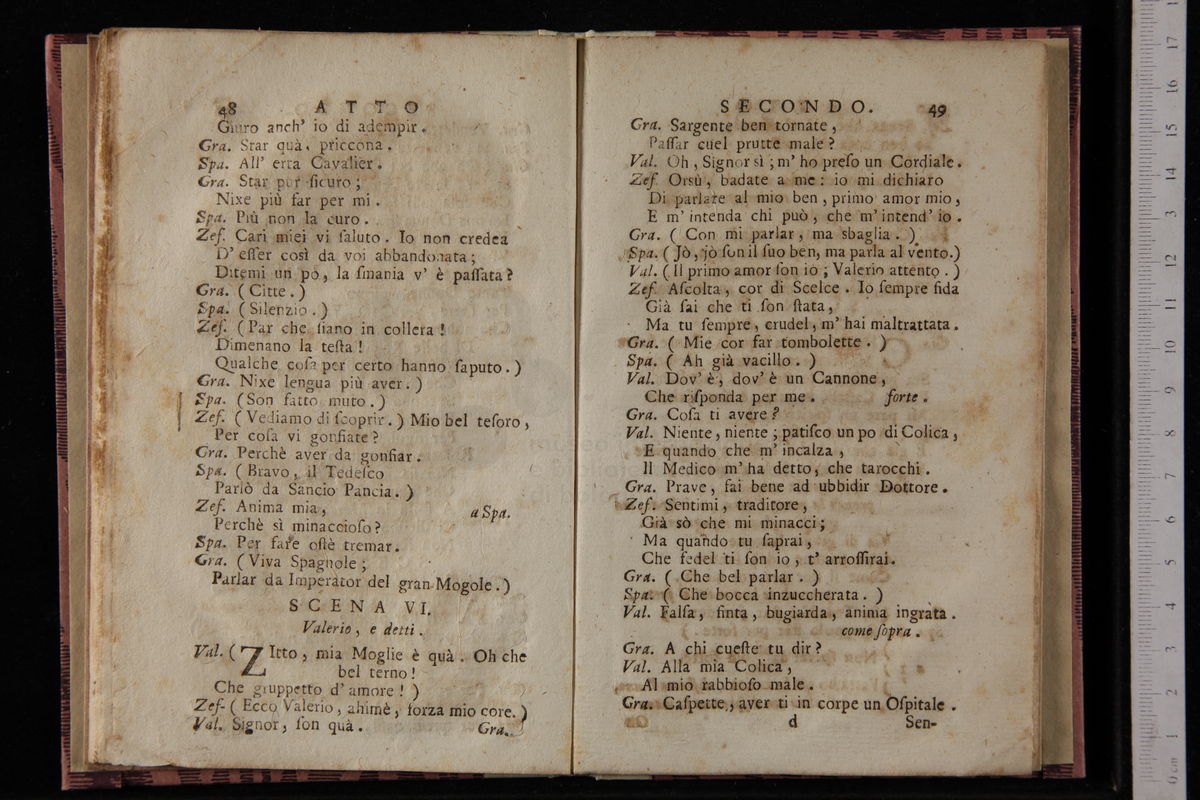 48 ATTO
Giuro anch' io di adempir.
Gra. Star quà, priccona.
Spa. All' erta Cavalier.
Gra. Star per ſicuro;
Nixe più far per mi.
Spa. Più non la curo.
Zef. Cari miei vi ſaluto. Io non credea
D' eſſer così da voi abbandonata;
Ditemi un pò, la ſmania v' è paſſata?
Gra. (Citte.)
Spa. (Silenzio.)
Zef. (Par che ſiano in collera!
Dimenano la teſta!
Qualche coſa per certo hanno ſaputo.)
Gra. Nixe lengua più aver.)
Spa. (Son fatto muto.)
Zef. (Vediamo di ſcoprir.) Mio bel teſoro,
Per coſa vi gonfiate?
Gra. Perchè aver da gonfiar.
Spa. (Bravo, il Tedeſco
Parlò da Sancio Pancia.)
Zef. Anima mia, a Spa.
Perchè sì minaccioſo?
Spa. Per fare oſtè tremar.
Gra. (Viva Spagnole;
Parlar da Imperator del gran Mogole.)
SCENA VI.
Valerio, e detti.
Val. (ZItto, mia Moglie è quà. Oh che
bel terno!
Che gruppetto d' amore!)
Zef. (Ecco Valerio, ahimè, forza mio core.)
Val. Signor, ſon quà. Gra.
SECONDO. 49
Gra. Sargente ben tornate,
Paſſar cuel prutte male?
Val. Oh, Signor sì; m' ho preſo un Cordiale.
Zef. Orsù, badate a me: io mi dichiaro
Di parlare al mio ben, primo amor mio,
E m' intenda chi può, che m' intend' io.
Gra. (Con mi parlar, ma sbaglia.)
Spa. (Jò, jò ſon il ſuo ben, ma parla al vento.)
Val. (Il primo amor ſon io; Valerio attento.)
Zef. Aſcolta, cor di Scelce. Io ſempre fida
Già ſai che ti ſon ſtata,
Ma tu ſempre, crudel, m' hai maltrattata.
Gra. (Mie cor far tombolette.)
Spa. (Ah già vacillo.)
Val. Dov' è, dov' è un Cannone,
Che riſponda per me. forte.
Gra. Coſa ti avere?
Val. Niente, niente; patiſco un po di Colica,
E quando che m' incalza,
Il Medico m' ha detto, che tarocchi.
Gra. Prave, fai bene ad ubbidir Dottore.
Zef. Sentimi, traditore,
Già sò che mi minacci;
Ma quando tu ſaprai,
Che fedel ti ſon io, t' arroſſirai.
Gra. (Che bel parlar.)
Spa. (Che bocca inzuccherata.)
Val. Falſa, finta, bugiarda, anima ingrata.
come ſopra.
Gra. A chi cueſte tu dir?
Val. Alla mia Colica,
Al mio rabbioſo male.
Gra. Caſpette, aver ti in corpe un Oſpitale.
d Sen-